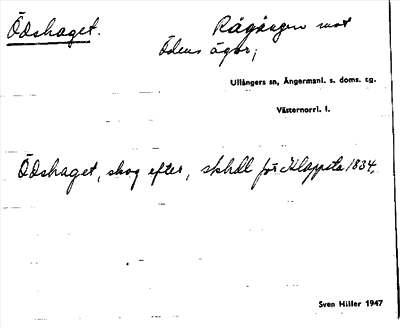 Ödshaget.
Rågången mot
Ödens ägor;
Ullångers sn, Ångermanl. s. doms. tg.
Västernorrl. l.
Ödshaget, skog efter, skhdl för Klappsta 1834,
Sven Hiller 1947